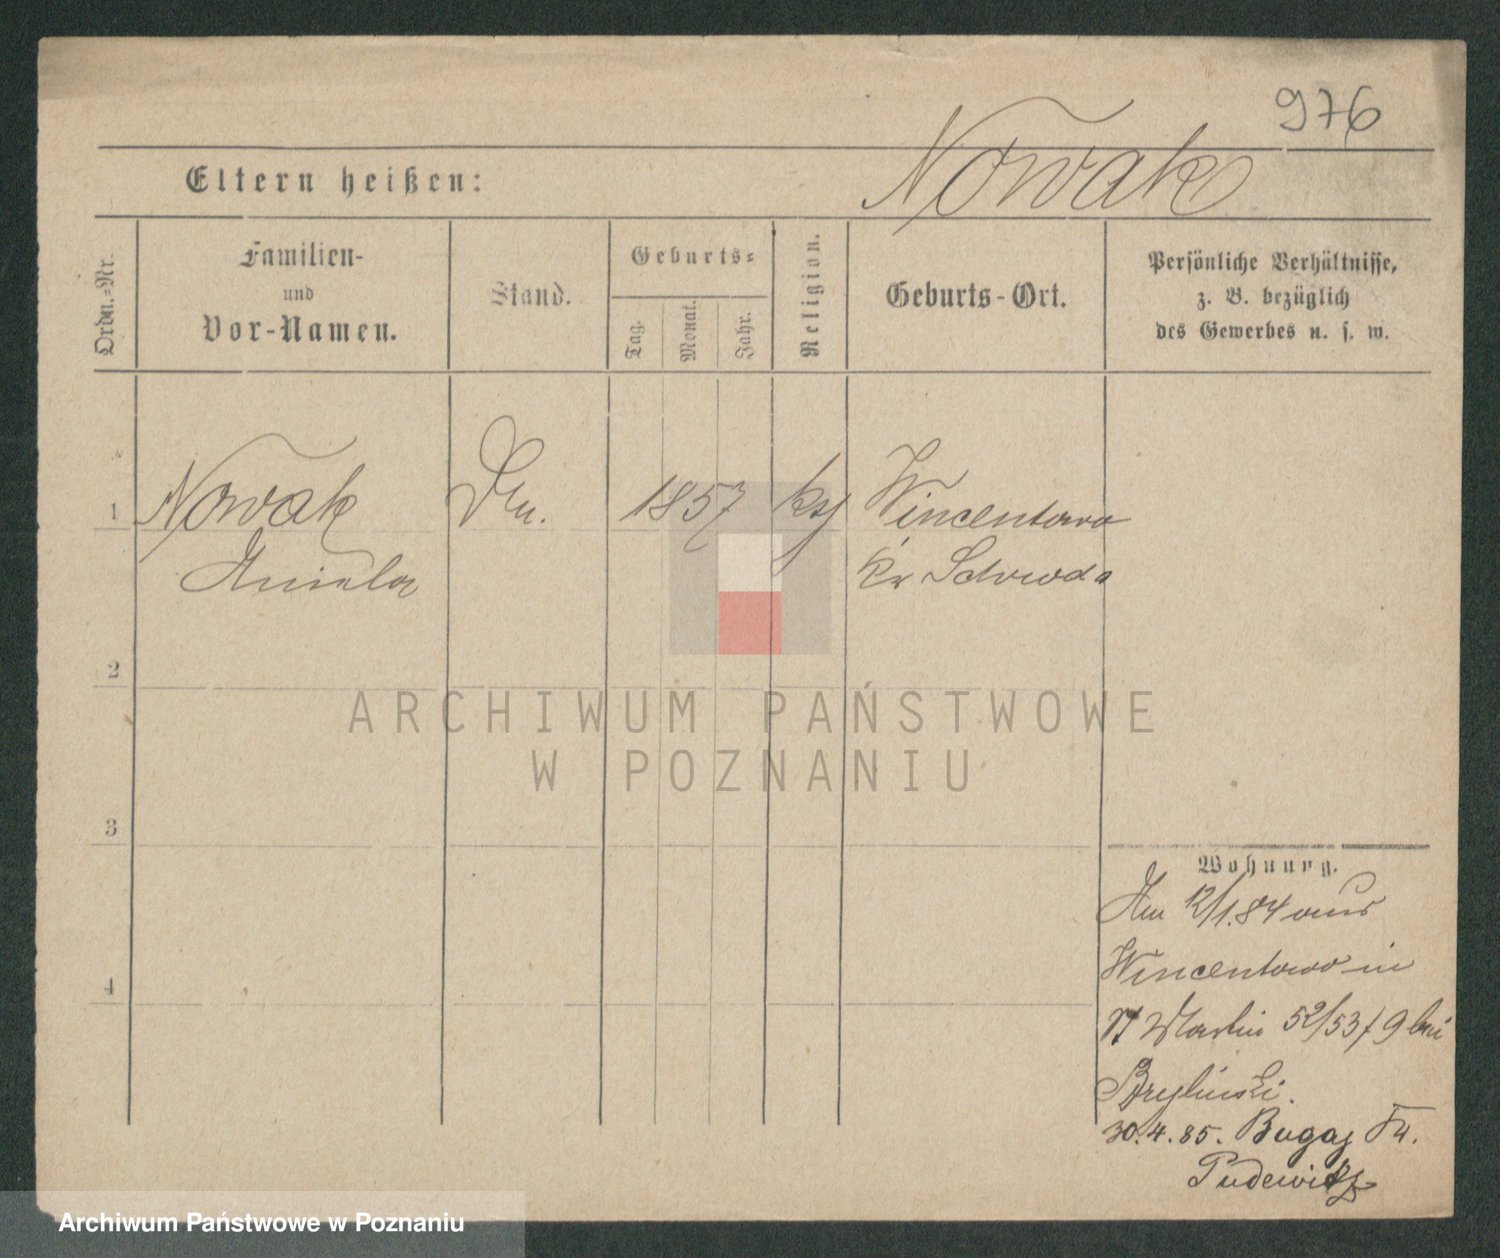 976
Eltern heißen: Nowak
Ordn.-Nr.
Familien-
und
Vor-Namen.
Stand.
Geburts-
Tag.
Monat.
Jahr.
Religion.
Geburts-Ort.
Persönliche Verhältnisse,
z. B. bezüglich
des Gewerbes u. s. w.
1 Nowak 1857 Wincentowo
Aniela Kr Schroda
2
ARCHIWUM PAŃSTWOWE
W POZNANIU
3
Wohnung.
Am 12/1.84 aus
4
Wincentowo in
St Martin 52/53/9 bei
Brylinski.
30.4.85. Bugaj
Pudewitz
Archiwum Państwowe w Poznaniu